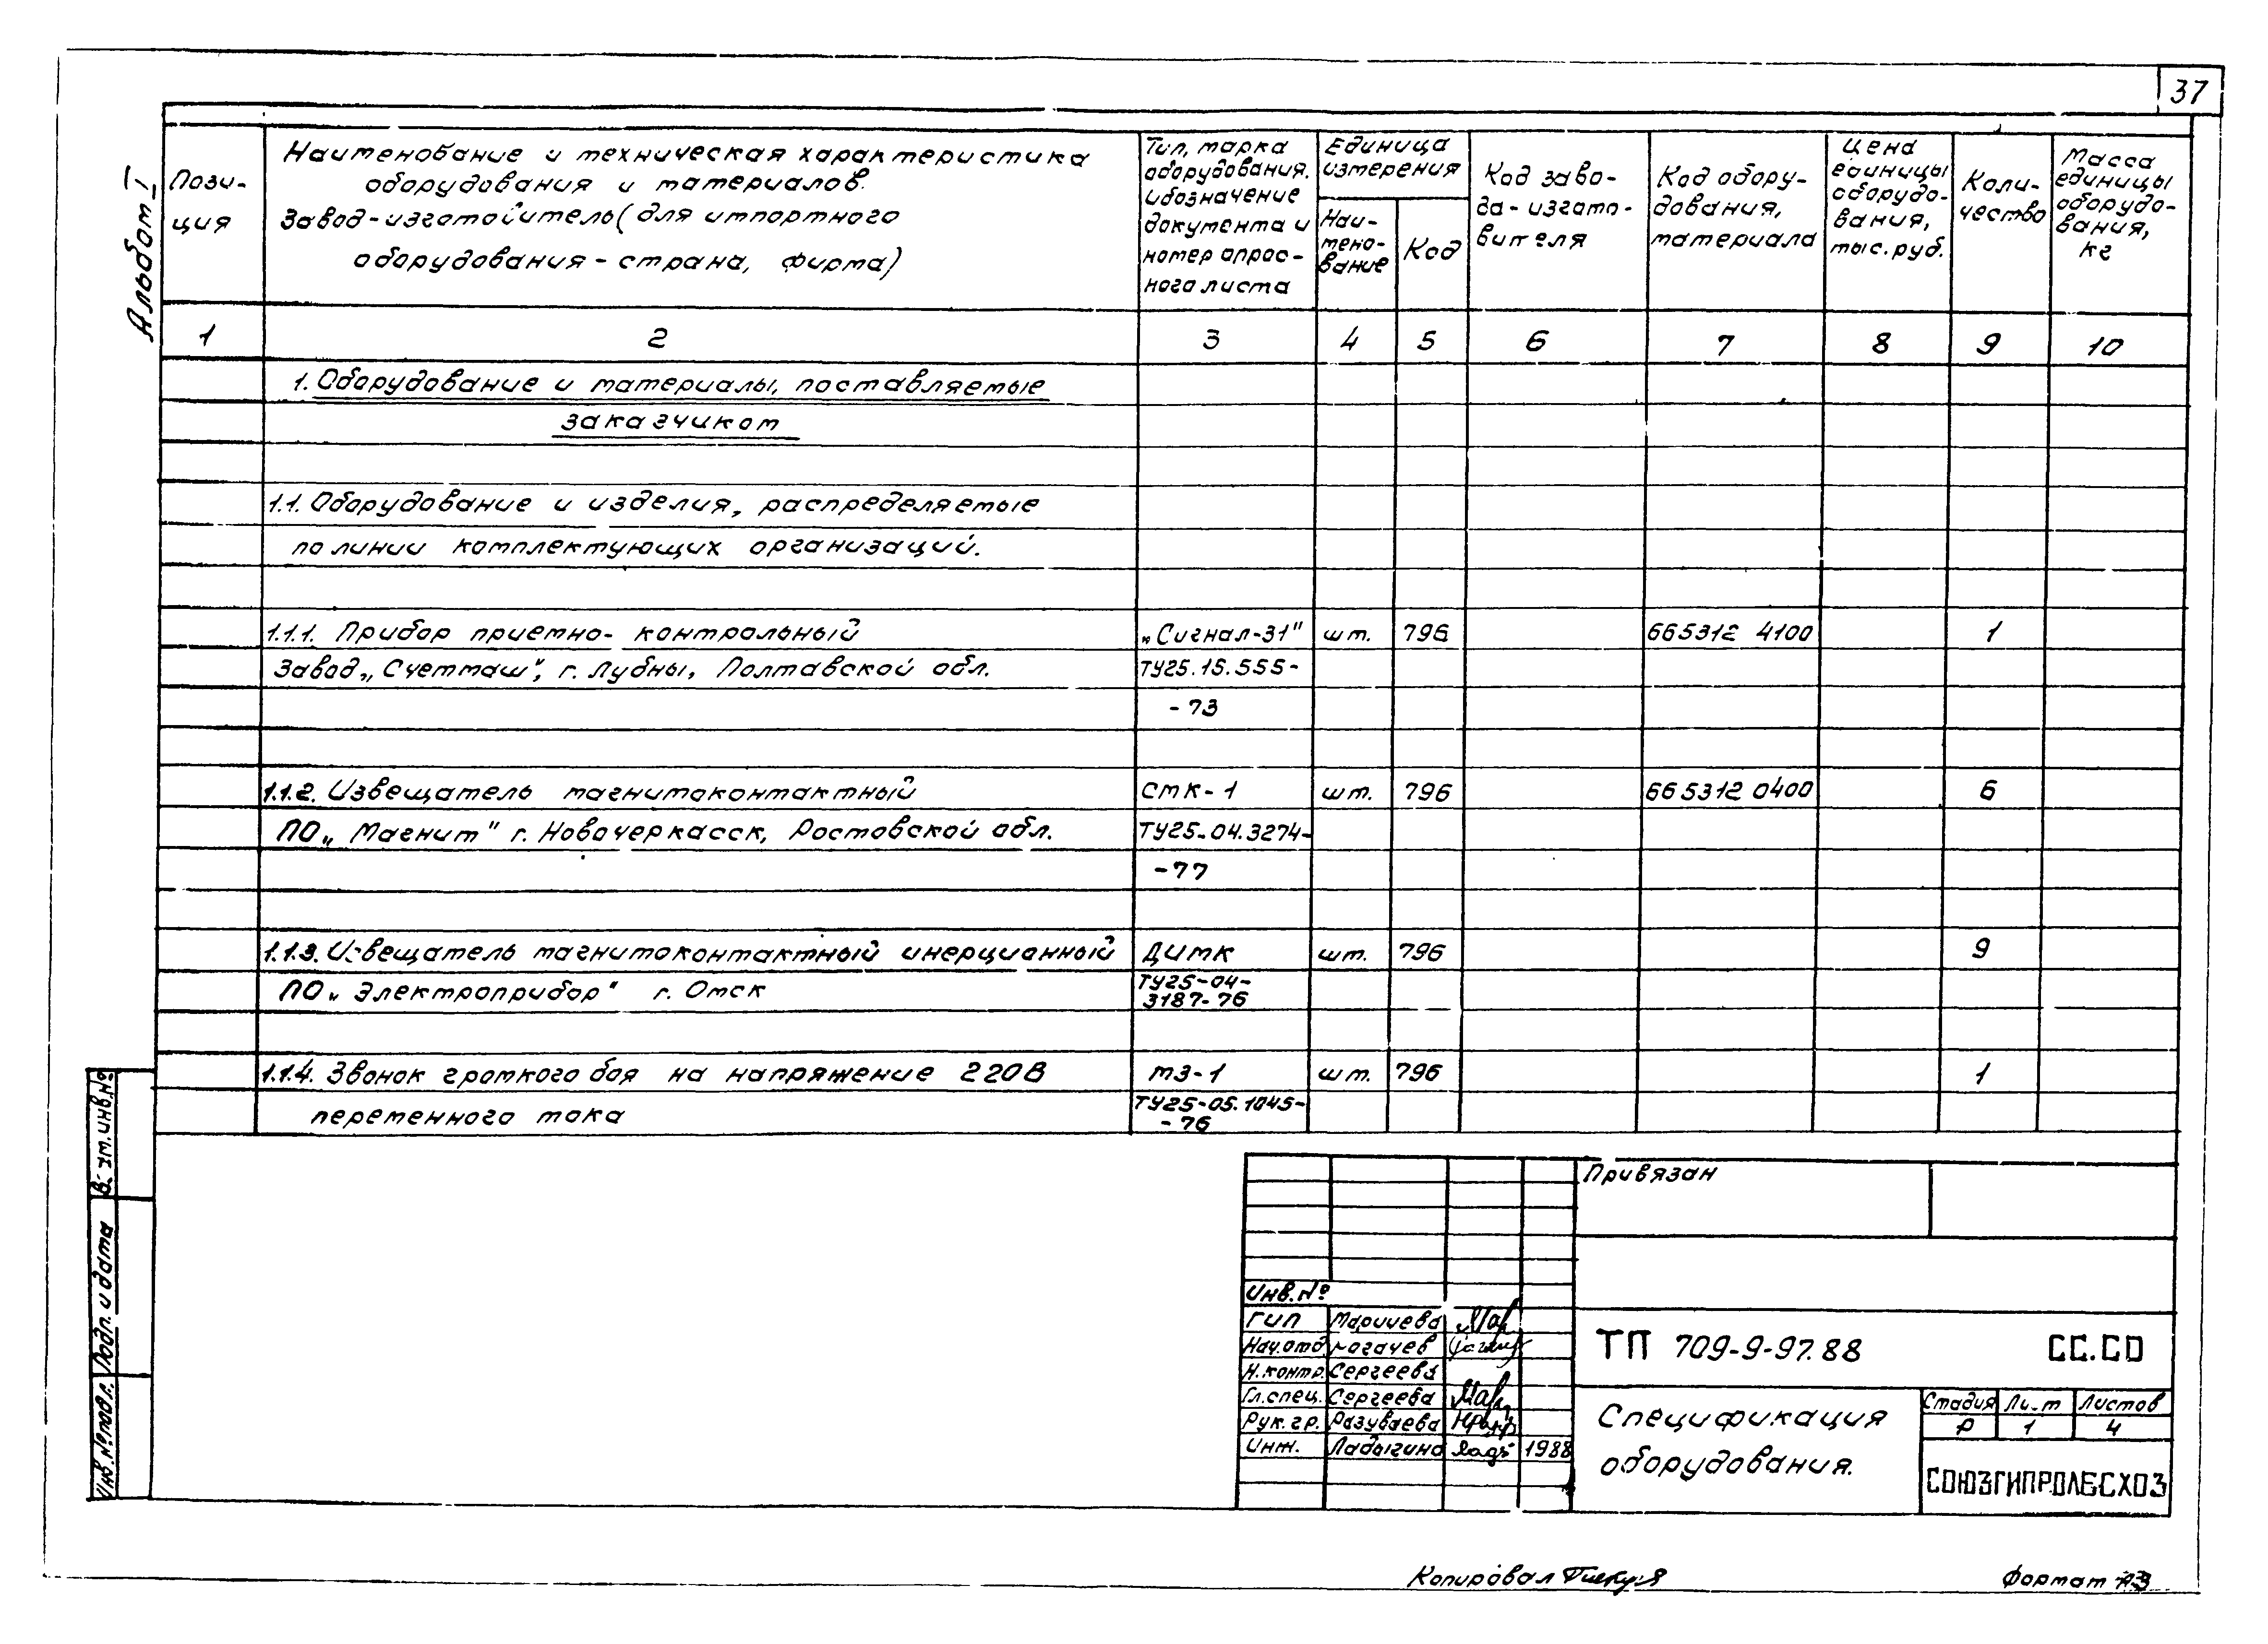 37
Альбом I
Пози-
ция
Наименование и техническая характеристика
оборудования и материалов.
Завод-изготовитель (для импортного
оборудования - страна, фирма)
Тип, марка
оборудования.
Обозначение
документа и
номер опрос-
ного листа
Единица
измерения
Наи-
мено-
вание
Код
Код заво-
да-изгото-
вителя
Код обору-
дования,
материала
Цена
единицы
оборудо-
вания,
тыс. руб.
Коли-
чество
Масса
единицы
оборудо-
вания,
кг
1 2 3 4 5 6 7 8 9 10
1. Оборудование и материалы, поставляемые
заказчиком
1.1. Оборудование и изделия, распределяемые
по линии комплектующих организаций.
1.1.1. Прибор приемно-контрольный „Сигнал-31" шт. 796 665312 4100 1
Завод „Счетмаш", г. Лубны, Полтавской обл. ТУ25.15.555-
-73
1.1.2. Извещатель магнитоконтактный СМК-1 шт. 796 665312 0400 6
ПО „Магнит" г. Новочеркасск, Ростовской обл. ТУ25-04.3274-
-77
1.1.3. Извещатель магнитоконтактный инерционный ДИМК шт. 796 9
ПО „Электроприбор" г. Омск ТУ25-04-
3187-76
1.1.4. Звонок громкого боя на напряжение 220В МЗ-1 шт. 796 1
переменного тока ТУ25-05.1045-
-76
Взам. инв. №
Подп. и дата
Инв. № подл.
Привязан
Инв. №
ГИП Маричева
Нач. отд. Рогачев
Н. контр. Сергеева
Гл. спец. Сергеева
Рук. гр. Разуваева
Инж. Ладыгина 1988
ТП 709-9-97.88 СС.СО
Спецификация
оборудования.
Стадия Лист Листов
Р 1 4
СОЮЗГИПРОЛЕСХОЗ
Копировал
Формат А3